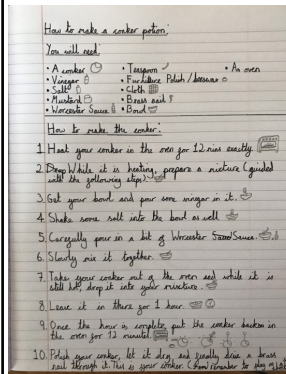 How to make a conker potion:
You will need:
• A conker • Teaspoon • An oven
• Vinegar • Furniture Polish / beeswax
• Salt • Cloth
• Mustard • Brass nail
• Worcester Sauce • Bowl
How to make the conker:
1. Heat your conker in the oven for 12 mins exactly
2. Drop While it is heating, prepare a mixture (guided
with the following steps).
3. Get your bowl and pour some vinegar in it.
4. Shake some salt into the bowl as well
5. Carefully pour in a bit of Worcester Sauce.
6. Slowly mix it together.
7. Take your conker out of the oven and while it is
still hot, drop it into your mixture.
8. Leave it in there for 1 hour.
9. Once the hour is complete, put the conker back in
the oven for 12 minutes.
10. Polish your conker, let it dry and finally drive a brass
nail through it. This is your conker. remember to play